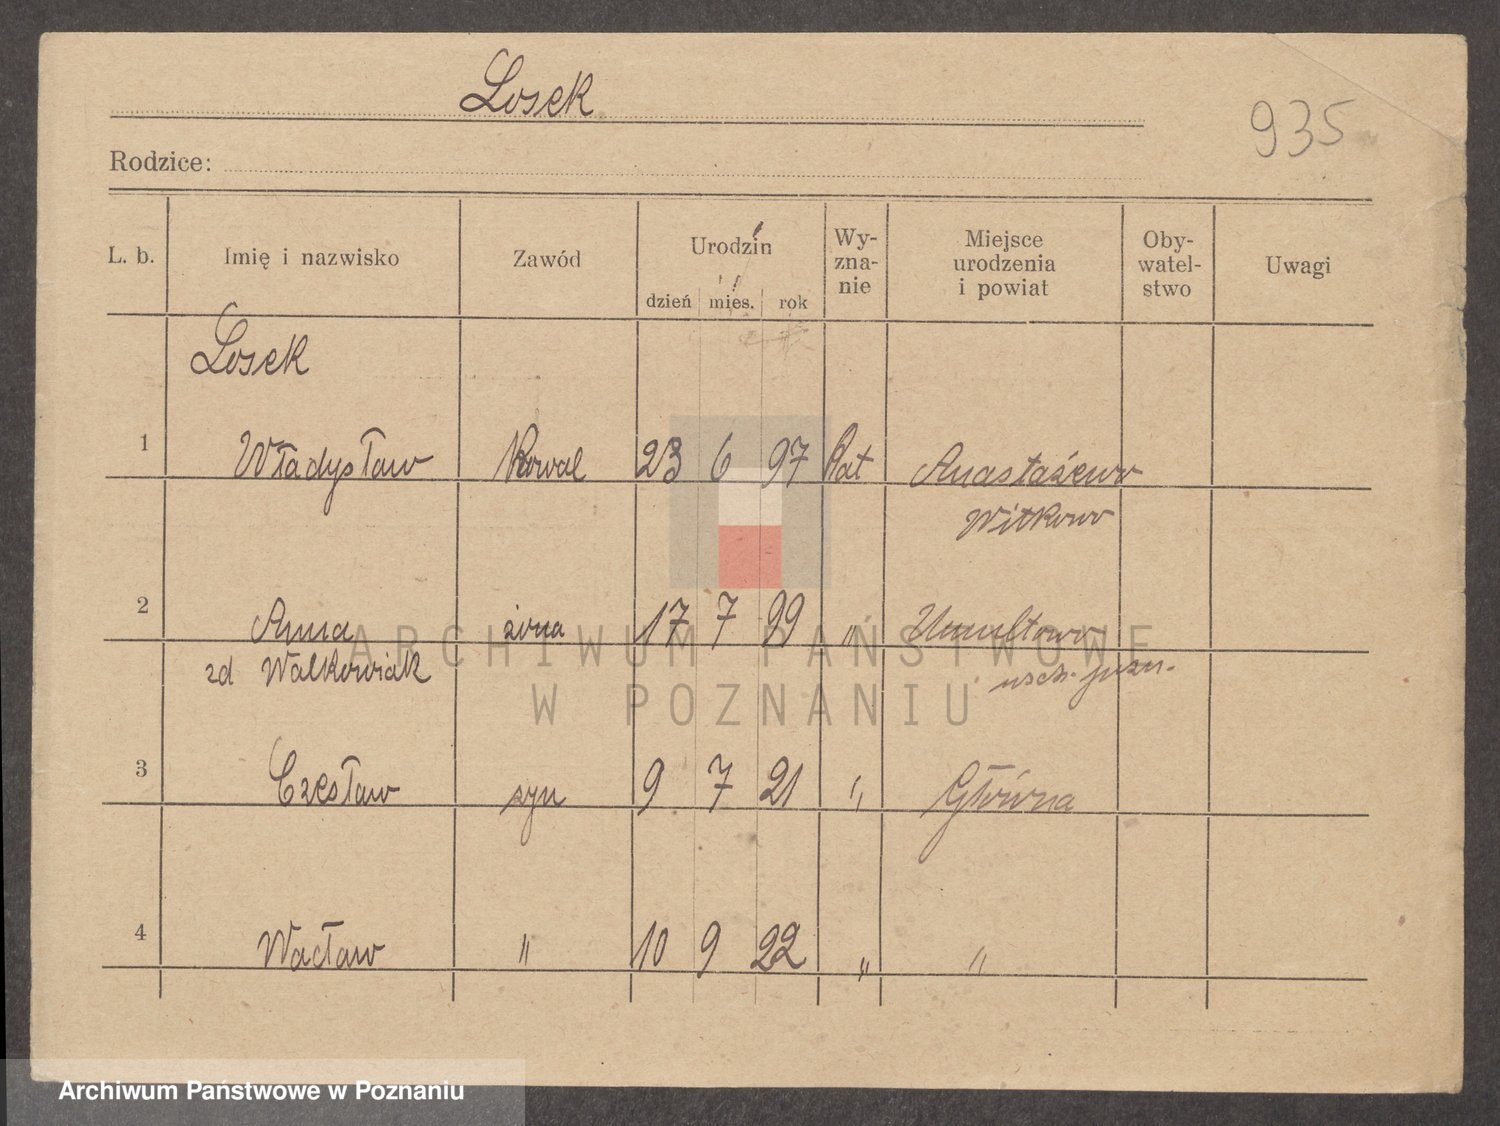 Losek
935
Rodzice:
L. b. Imię i nazwisko Zawód Urodzin dzień mies. rok Wy-zna-nie Miejsce urodzenia i powiat Oby-watel-stwo Uwagi
Losek
1 Władysław Kowal 23 6 97 Kat Anastażewo
Witkowo
2 Anna żona 17 7 99 " Umultowo
zd Walkowiak wsch. pozn.
3 Czesław syn 9 7 21 " Główna
4 Wacław " 10 9 22 " "
ARCHIWUM PAŃSTWOWE
W POZNANIU
Archiwum Państwowe w Poznaniu